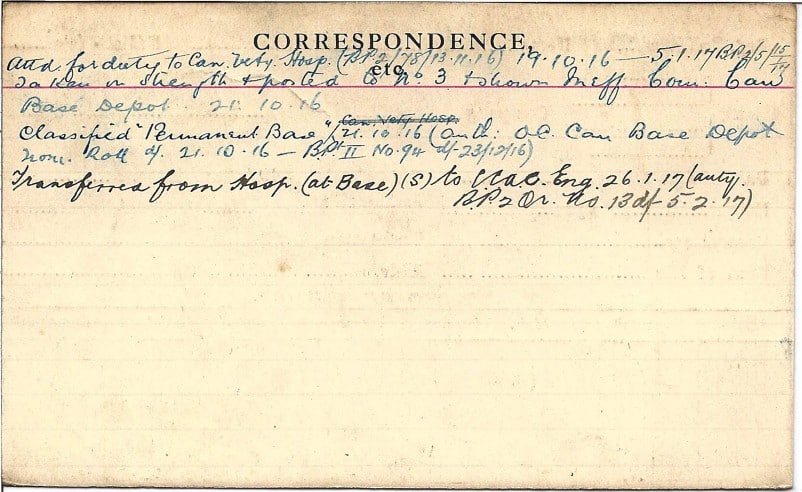 CORRESPONDENCE,
etc.
Attd. for duty to Can. Vety. Hosp. (B.P.2/78/13.11.16) 19.10.16 — 5.1.17 B.P.2/5/15/1/17
Taken on strength & posted to No. 3 & shown Ineff Com. Can
Base Depot 21.10.16
Can. Vety Hosp.
Classified "Permanent Base" 21.10.16 (auth: O.C. Can Base Depot
nom. Roll d/. 21.10.16 — B.Pt II No. 94 d/-23/12/16)
Transferred from Hosp. (at Base) (S) to Eng. 26.1.17 (auty.
B.P.2 Or. No. 13 df 5.2.17)